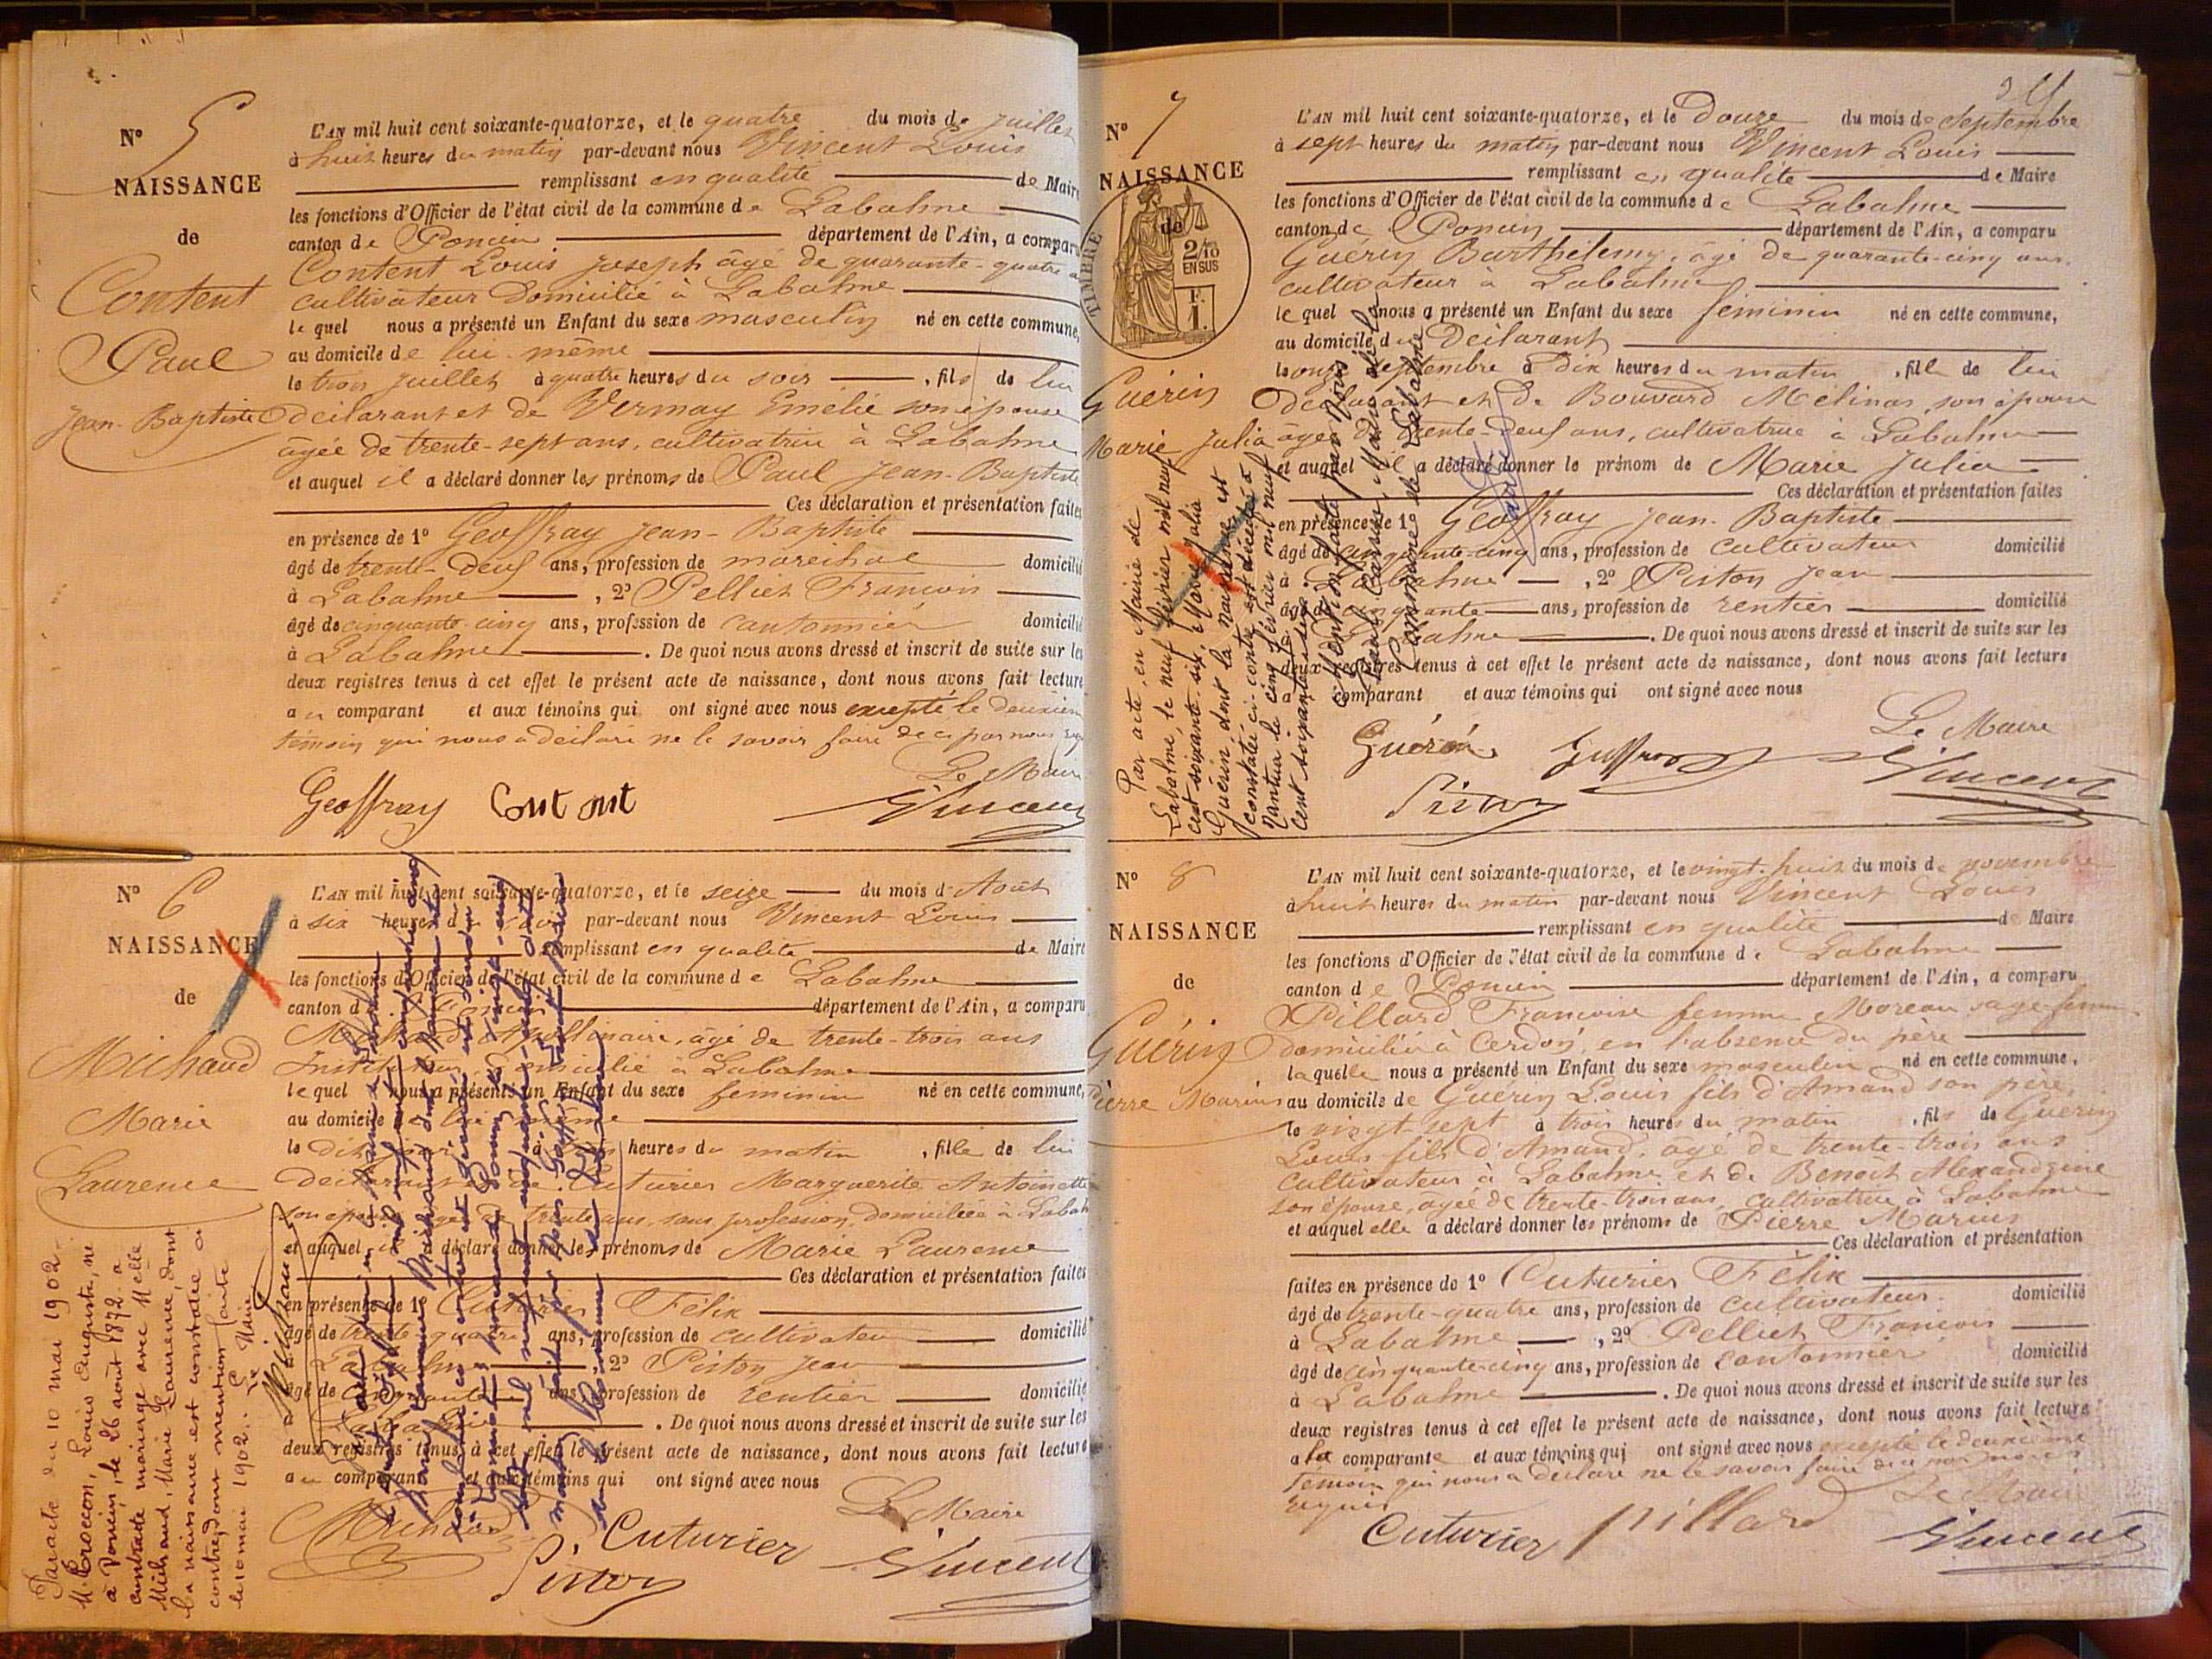 N° 5
NAISSANCE
de
Content
Paul
Jean-Baptiste
L'AN mil huit cent soixante-quatorze, et le quatre du mois de juillet
à huit heures du matin par-devant nous Vincent Louis
remplissant en qualité de Maire
les fonctions d'Officier de l'état civil de la commune de Labalme
canton de Poncin département de l'Ain, a comparu
Content Louis Joseph âgé de quarante-quatre a
cultivateur domicilié à Labalme
lequel nous a présenté un Enfant du sexe masculin né en cette commune,
au domicile de lui-même
le trois juillet à quatre heures du soir, fils de lui
déclarant et de Vermay Emelie son épouse
âgée de trente-sept ans, cultivatrice à Labalme
et auquel il a déclaré donner les prénoms de Paul Jean-Baptiste
Ces déclaration et présentation faites
en présence de 1° Geoffray Jean-Baptiste
âgé de trente-deux ans, profession de maréchal domicilié
à Labalme, 2° Pelliet François
âgé de cinquante-cinq ans, profession de cantonnier domicilié
à Labalme. De quoi nous avons dressé et inscrit de suite sur les
deux registres tenus à cet effet le présent acte de naissance, dont nous avons fait lecture
au comparant et aux témoins qui ont signé avec nous excepté le deuxième
témoin qui nous a déclaré ne le savoir faire de ce par nous
Le Maire
Geoffray Content Vincent
N° 6
NAISSANCE
de
Michaud
Marie
Laurence
L'AN mil huit cent soixante-quatorze, et le seize du mois d'Août
à six heures du soir par-devant nous Vincent Louis
remplissant en qualité de Maire
les fonctions d'Officier de l'état civil de la commune de Labalme
canton de Poncin département de l'Ain, a comparu
Michaud Apollinaire, âgé de trente-trois ans
Instituteur domicilié à Labalme
lequel nous a présenté un Enfant du sexe féminin né en cette commune,
au domicile de lui-même
le dit jour à heures du matin, fille de lui
déclarant et de Cuturier Marguerite Antoinette
son épouse âgée de trente ans, sans profession, domiciliée à Labalme
et auquel il a déclaré donner les prénoms de Marie Laurence
Ces déclaration et présentation faites
en présence de 1° Cuturier Félix
âgé de trente-quatre ans, profession de cultivateur domicilié
à Labalme 2° Piston Jean
âgé de cinquante ans, profession de rentier domicilié
à Labalme. De quoi nous avons dressé et inscrit de suite sur les
deux registres tenus à cet effet le présent acte de naissance, dont nous avons fait lecture
au comparant et aux témoins qui ont signé avec nous
Le Maire
Michaud Cuturier
Piston Vincent
Par acte du 10 mai 1902
M. Crocion, Louis Auguste, né
à Poncin, le 26 août 1872 a
contracté mariage avec Melle
Michaud, Marie Laurence, dont
la naissance est constatée ci
contre, dont mention faite
le 10 mai 1902. Le Maire
N° 7
NAISSANCE
de
TIMBRE
2/10
EN SUS
F.
1.
Guérin
Marie Julia
L'AN mil huit cent soixante-quatorze, et le Douze du mois de Septembre
à sept heures du matin par-devant nous Vincent Louis
remplissant en qualité de Maire
les fonctions d'Officier de l'état civil de la commune de Labalme
canton de Poncin département de l'Ain, a comparu
Guérin Barthélemy, âgé de quarante-cinq ans
cultivateur à Labalme
lequel nous a présenté un Enfant du sexe féminin né en cette commune,
au domicile du Déclarant
le onze septembre à dix heures du matin, fille de lui
déclarant et de Bouvard Mélinas, son épouse
âgée de trente-deux ans, cultivatrice à Labalme
et auquel il a déclaré donner le prénom de Marie Julia
Ces déclaration et présentation faites
en présence de 1° Geoffray Jean-Baptiste
âgé de cinquante-cinq ans, profession de cultivateur domicilié
à Labalme, 2° Piston Jean
âgé de cinquante ans, profession de rentier domicilié
à Labalme. De quoi nous avons dressé et inscrit de suite sur les
deux registres tenus à cet effet le présent acte de naissance, dont nous avons fait lecture
comparant et aux témoins qui ont signé avec nous
Le Maire
Guérin Geoffray Vincent
Piston
Par acte, en Mairie de
Labalme, le neuf février mil neuf
cent soixante-six, Marie Julia
Guérin dont la naissance est
constatée ci-contre est décédée à
Nantua le cinq février mil neuf
cent soixante-six.
Mention faite par Nous
Commune de Labalme
N° 8
NAISSANCE
de
Guérin
Pierre Marius
L'AN mil huit cent soixante-quatorze, et le vingt-huit du mois de novembre
à huit heures du matin par-devant nous Vincent Louis
remplissant en qualité de Maire
les fonctions d'Officier de l'état civil de la commune de Labalme
canton de Poncin département de l'Ain, a comparu
Pillard Françoise femme Moreau sage-femme
domiciliée à Cerdon, en l'absence du père
laquelle nous a présenté un Enfant du sexe masculin né en cette commune,
au domicile de Guérin Louis fils d'Amand son père
le vingt-sept à trois heures du matin, fils de Guérin
Louis fils d'Amand, âgé de trente-trois ans
cultivateur à Labalme et de Benoit Alexandrine
son épouse, âgée de trente-trois ans, cultivatrice à Labalme
et auquel elle a déclaré donner les prénoms de Pierre Marius
Ces déclaration et présentation
faites en présence de 1° Cuturier Félix
âgé de trente-quatre ans, profession de cultivateur domicilié
à Labalme, 2° Pelliet François
âgé de cinquante-cinq ans, profession de cantonnier domicilié
à Labalme. De quoi nous avons dressé et inscrit de suite sur les
deux registres tenus à cet effet le présent acte de naissance, dont nous avons fait lecture
a la comparante et aux témoins qui ont signé avec nous excepté le deuxième
témoin qui nous a déclaré ne le savoir faire de ce par nous
requis
Le Maire
Cuturier pillard Vincent